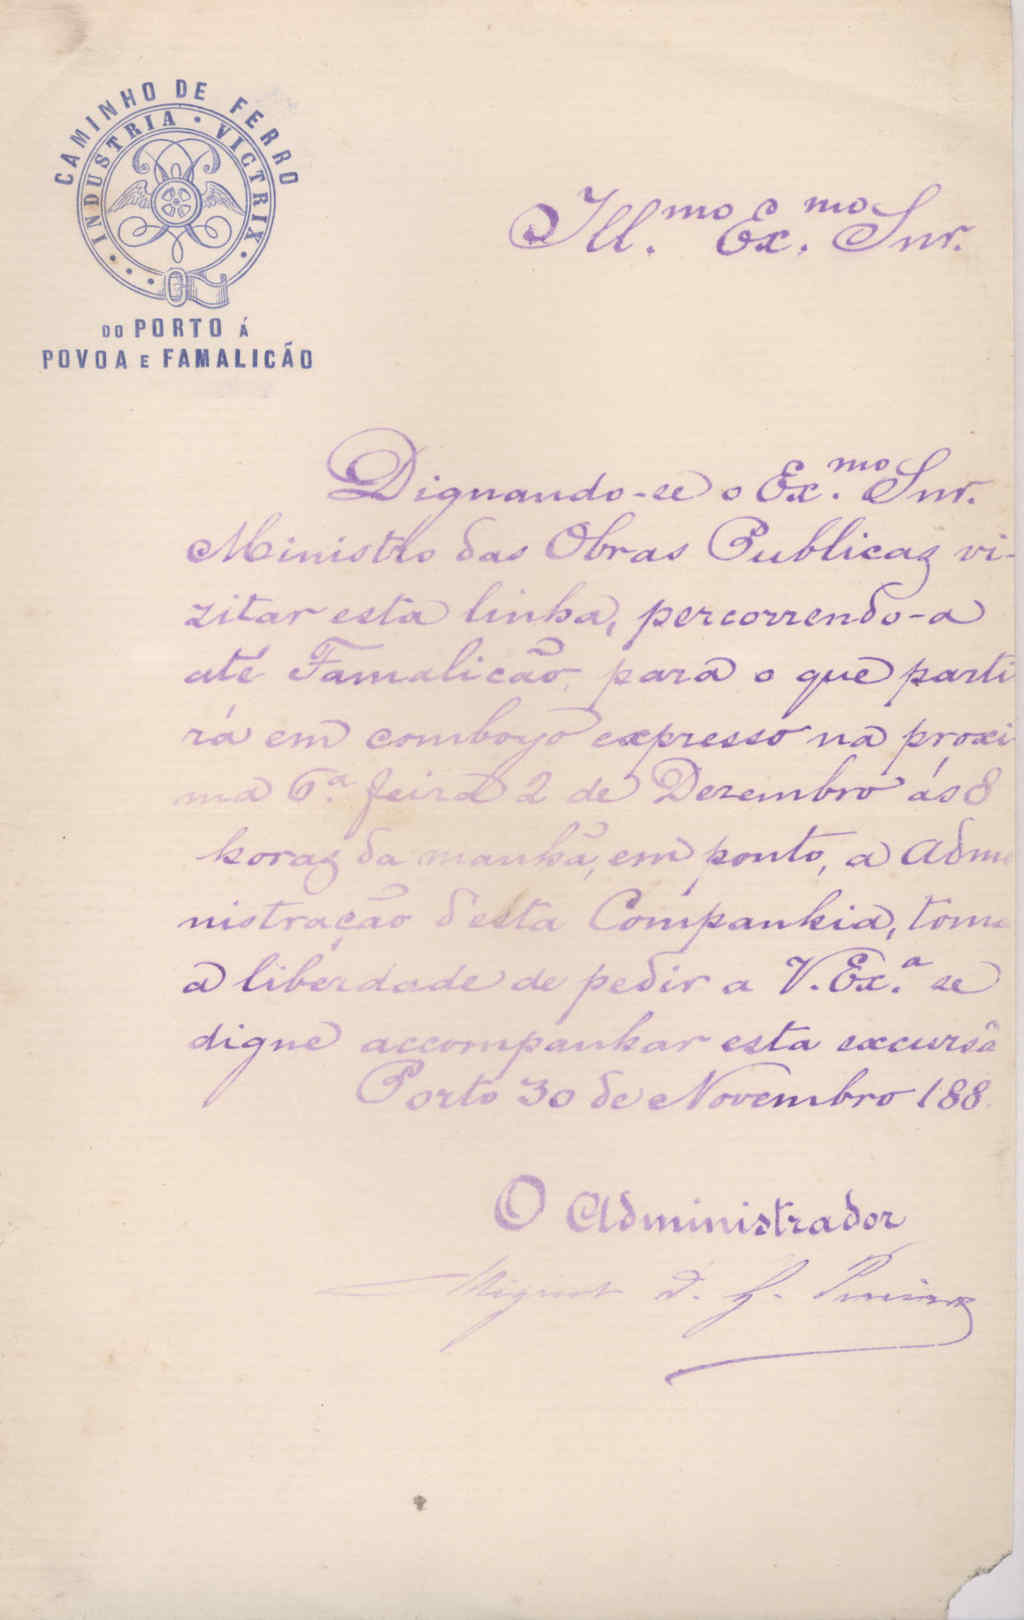 CAMINHO DE FERRO
INDUSTRIA · VICTRIX
DO PORTO Á
POVOA E FAMALICÃO
Ill.mo e Ex.mo Snr.
Dignando-se o Ex.mo Snr.
Ministro das Obras Publicas vi-
zitar esta linha, percorrendo-a
até Famalicão, para o que parti
rá em comboyo expresso na proxi
ma 6.ª feira 2 de Dezembro ás 8
horas da manhã, em ponto, a Admi
nistração d'esta Companhia, toma
a liberdade de pedir a V. Ex.ª se
digne accompanhar esta excursã
Porto 30 de Novembro 188
O Administrador
Miguel